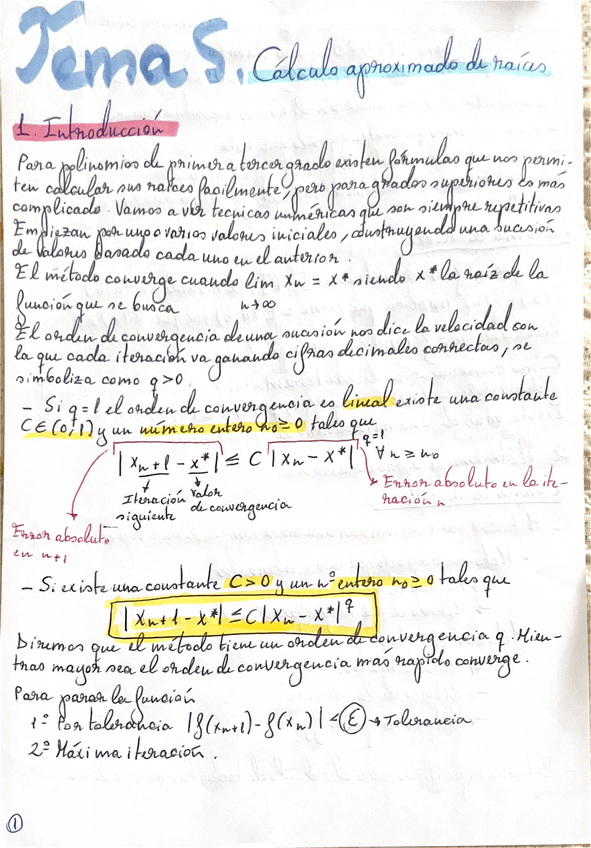 Tema 5. Cálculo aproximado de raíces
1. Introducción
Para polinomios de primer a tercer grado existen fórmulas que nos permi-
ten calcular sus raíces facilmente, pero para grados superiores es más
complicado. Vamos a ver tecnicas numéricas que son siempre repetitivas
Empiezan por uno o varios valores iniciales, construyendo una sucesión
de valores basado cada uno en el anterior.
El método converge cuando lim Xn = x* siendo x* la raíz de la
función que se busca n→∞
El orden de convergencia de una sucesión nos dice la velocidad con
la que cada iteración va ganando cifras decimales correctas, se
simboliza como q>0.
- Si q=1 el orden de convergencia es lineal existe una constante
C∈(0,1) y un número entero n₀≥0 tales que
|Xn+1 - x*| ≤ C |Xn - x*|^q=1 ∀n ≥ n₀
Iteración siguiente
Valor de convergencia
Error absoluto en la ite-
ración n
Error absoluto
en n+1
- Si existe una constante C>0 y un nº entero n₀≥0 tales que
|Xn+1 - x*| ≤ C |Xn - x*|^q
Diremos que el método tiene un orden de convergencia q. Mien-
tras mayor sea el orden de convergencia más rapido converge.
Para parar la función
1º Por tolerancia |f(xn+1) - f(xn)| < ε → Tolerancia
2º Máxima iteración.
1